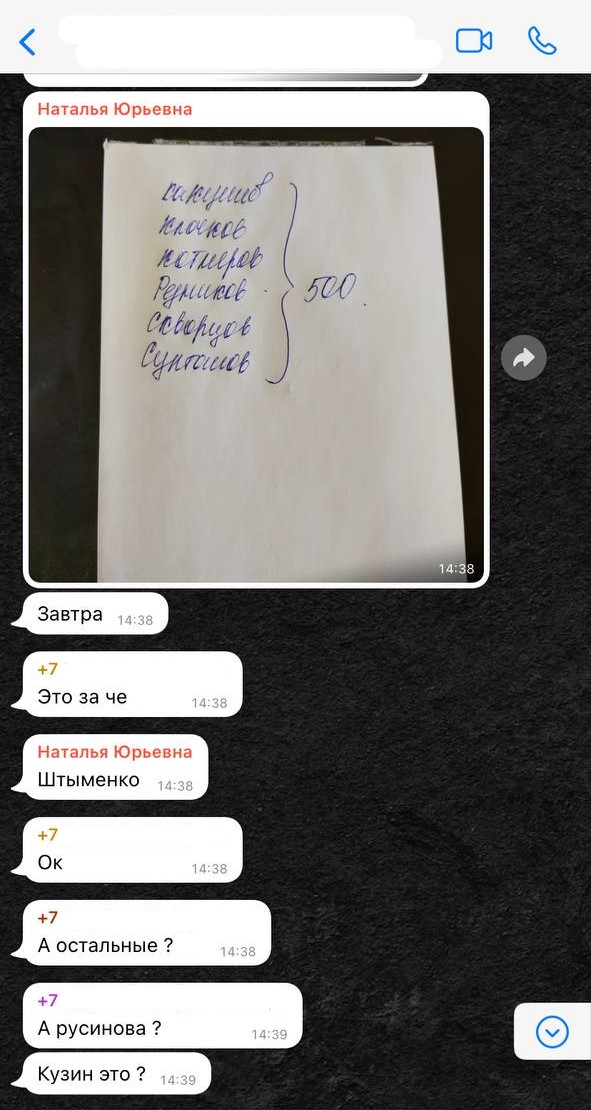 Наталья Юрьевна
Клочков
Котмеров
Редников
Скворцов
Сунташов
500.
14:38
Завтра 14:38
+7
Это за че 14:38
Наталья Юрьевна
Штыменко 14:38
+7
Ок 14:38
+7
А остальные ? 14:38
+7
А русинова ? 14:39
Кузин это ? 14:39